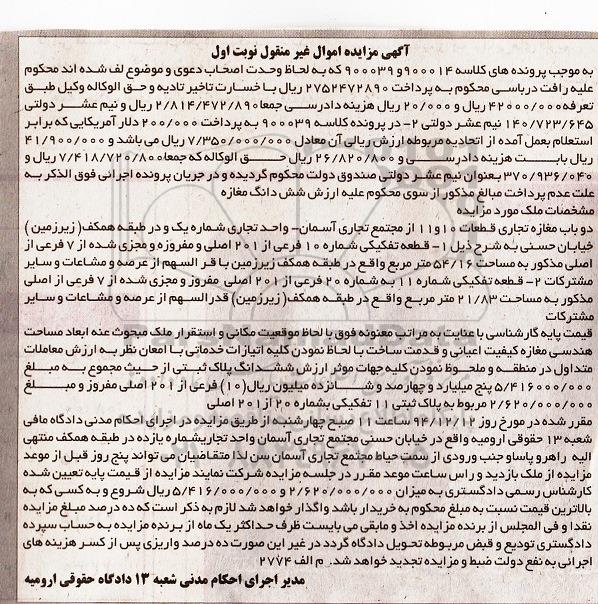 آگهی مزایده اموال غیر منقول نوبت اول
به موجب پرونده های کلاسه ۹۰۰۰۱۴ و ۹۰۰۰۳۹ که به لحاظ وحدت اصحاب دعوی و موضوع لف شده اند محکوم
علیه رافت درباسی محکوم به پرداخت ۲۷۵۲۴۷۲۸۹۰ ریال با خسارت تاخیر تادیه و حق الوکاله وکیل طبق
تعرفه ۴۲۰۰۰۰۰۰ ریال و ۲۰/۰۰۰ ریال هزینه دادرسی جمعا ۲/۸۱۴/۴۷۲/۸۹۰ ریال و نیم عشر دولتی
۱۴۰/۷۲۳/۶۴۵ نیم عشر دولتی ۲- در پرونده کلاسه ۹۰۰۰۳۹ به پرداخت ۲۰۰/۰۰۰ دلار آمریکایی که برابر
استعلام بعمل آمده از اتحادیه مربوطه ارزش ریالی آن معادل ۷/۳۵۰/۰۰۰/۰۰۰ ریال می باشد و ۴۱/۹۰۰/۰۰۰
ریال بابت هزینه دادرسی و ۲۶/۸۲۰/۸۰۰ ریال حق الوکاله که جمعا ۷/۴۱۸/۷۲۰/۸۰۰ ریال و
۳۷۰/۹۳۶/۰۴۰ بعنوان نیم عشر دولتی صندوق دولت محکوم گردیده و در جریان پرونده اجرائی فوق الذکر به
علت عدم پرداخت مبالغ مذکور از سوی محکوم علیه ارزش شش دانگ مغازه
مشخصات ملک مورد مزایده
دو باب مغازه تجاری قطعات ۱۰ و ۱۱ از مجتمع تجاری آسمان- واحد تجاری شماره یک و در طبقه همکف( زیرزمین )
خیابان حسنی به شرح ذیل ۱- قطعه تفکیکی شماره ۱۰ فرعی از ۲۰۱ اصلی و مفروزه و مجزی شده از ۷ فرعی از
اصلی مذکور به مساحت ۵۴/۱۶ متر مربع واقع در طبقه همکف زیرزمین با قر السهم از عرصه و مشاعات و سایر
مشترکات ۲- قطعه تفکیکی شماره ۱۱ به شماره ۲۰ فرعی از ۲۰۱ اصلی مفروز و مجزی شده از ۷ فرعی از اصلی
مذکور به مساحت ۲۱/۸۳ متر مربع واقع در طبقه همکف( زیرزمین ) قدرالسهم از عرصه و مشاعات و سایر
مشترکات
قیمت پایه گارشناسی با عنایت به مراتب معنونه فوق با لحاظ موقعیت مکانی و استقرار ملک مبحوث عنه ابعاد مساحت
هندسی مغازه کیفیت اعیانی و قدمت ساخت با لحاظ نمودن کلیه اتیازات خدماتی با امعان نظر به ارزش معاملات
متداول در منطقه و ملحوظ نمودن کلیه جهات موثر ارزش ششدانگ پلاک ثبتی از حیث مجموع به مبلغ
۵/۴۱۶۰۰۰/۰۰۰ پنج میلیارد و چهارصد و شانزده میلیون ریال(۱۰) فرعی از ۲۰۱ اصلی مفروز و مبلغ
۲/۶۲۰/۰۰۰/۰۰۰ مربوط به پلاک ثبتی ۱۱ تفکیکی بشماره ۲۰ از ۲۰۱ اصلی
مقرر شده در مورخ روز ۹۴/۱۲/۱۲ ساعت ۱۱ صبح چهارشنبه از طریق مزایده در اجرای احکام مدنی دادگاه مافی
شعبه ۱۳ حقوقی ارومیه واقع در خیابان حسنی مجتمع تجاری آسمان واحد تجاریشماره یازده در طبقه همکف منتهی
الیه راهرو پاساو جنب ورودی از سمت حیاط مجتمع تجاری آسمان سن لذا متقاضیان می تواند پنج روز قبل از موعد
مزایده از ملک بازدید و راس ساعت موعد مقرر در جلسه مزایده شرکت نمایند مزایده از قیمت پایه تعیین شده
کارشناس رسمی دادگستری به میزان ۲/۶۲۰/۰۰۰/۰۰۰ و ۵/۴۱۶/۰۰۰/۰۰۰ ریال شروع و به کسی که به
بالاترین قیمت نسبت به مبلغ محکوم به خریدار باشد واگذار خواهد شد لازم به ذکر است که ده درصد مبلغ مزایده
نقدا و فی المجلس از برنده مزایده اخذ و مابقی می بایست ظرف حداکثر یک ماه از برنده مزایده به حساب سپرده
دادگستری تودیع و قبض مربوطه تحویل دادگاه گردد در غیر این صورت ده درصد واریزی پس از کسر هزینه های
اجرائی به نفع دولت ضبط و مزایده تجدید خواهد شد. م الف ۲۷۷۴
مدیر اجرای احکام مدنی شعبه ۱۳ دادگاه حقوقی ارومیه